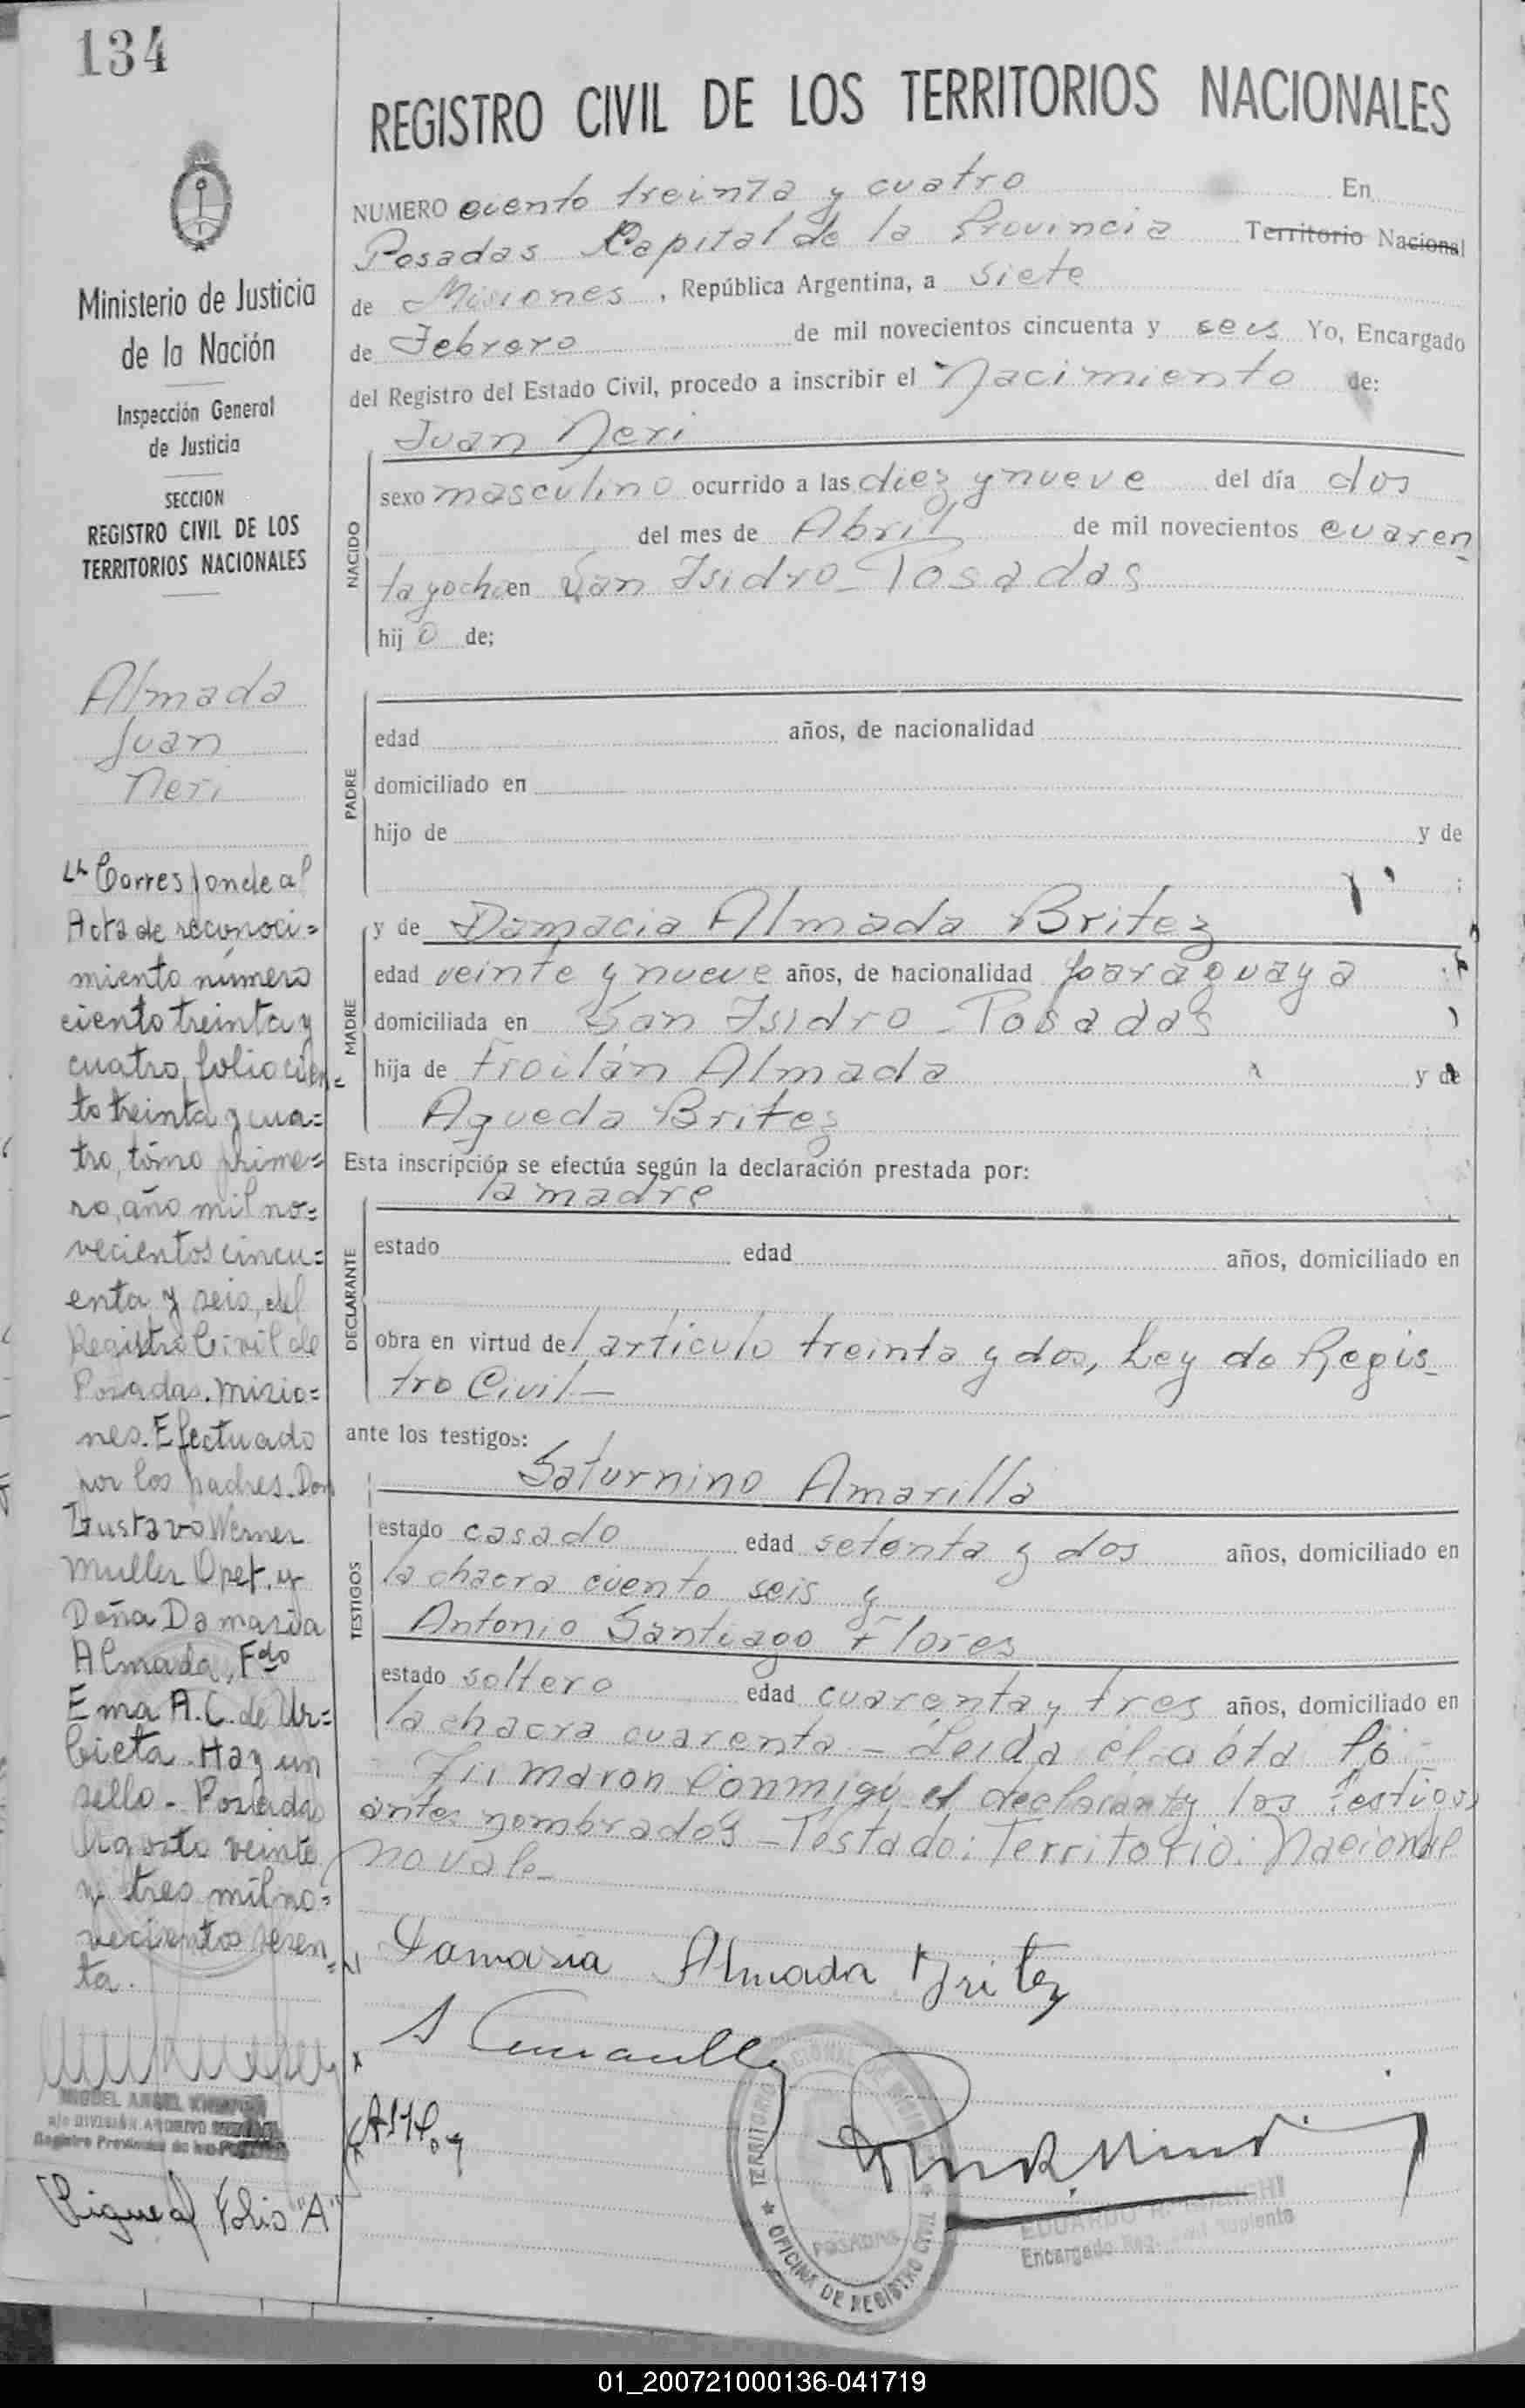 134
REGISTRO CIVIL DE LOS TERRITORIOS NACIONALES
Ministerio de Justicia
de la Nación
Inspección General
de Justicia
SECCION
REGISTRO CIVIL DE LOS
TERRITORIOS NACIONALES
Almada
Juan
Neri
Corresponde al
Acta de reconoci=
miento número
ciento treinta y
cuatro, folio cien=
to treinta y cua=
tro, tomo prime=
ro, año mil no=
vecientos cincu=
enta y seis, del
Registro Civil de
Posadas. Misio=
nes. Efectuado
por los padres. Don
Gustavo Werner
Muller Opet. y
Doña Damasia
Almada, Fdo
Ema A. C. de Ur=
bieta. Hay un
sello - Posadas
Agosto veinte
y tres mil no=
vecientos sesen=
ta.
MIGUEL ANGEL
a/c DIVISIÓN ARCHIVO
Registro Provincial de las Personas
Sigue al Folio "A"
NUMERO ciento treinta y cuatro En
Posadas Capital de la Provincia Territorio Nacional
de Misiones, República Argentina, a siete
de Febrero de mil novecientos cincuenta y seis Yo, Encargado
del Registro del Estado Civil, procedo a inscribir el Nacimiento de:
Juan Neri
NACIDO
sexo masculino ocurrido a las diez y nueve del día dos
del mes de Abril de mil novecientos cuaren
ta y ocho en San Isidro - Posadas
hij o de;
PADRE
edad años, de nacionalidad
domiciliado en
hijo de y de
;
MADRE
y de Damacia Almada Britez
edad veinte y nueve años, de nacionalidad paraguaya
domiciliada en San Isidro - Posadas
hija de Froilán Almada y de
Agueda Britez
Esta inscripción se efectúa según la declaración prestada por:
la madre
DECLARANTE
estado edad años, domiciliado en
obra en virtud del articulo treinta y dos, Ley de Regis-
tro Civil -
ante los testigos:
TESTIGOS
Saturnino Amarilla
estado casado edad setenta y dos años, domiciliado en
la chacra ciento seis y
Antonio Santiago Flores
estado soltero edad cuarenta y tres años, domiciliado en
la chacra cuarenta - Leida el acta la
Firmaron conmigo el declarante y los testigos
antes nombrados - Testado: Territorio: Nacional
no vale -
Damasia Almada Britez
TERRITORIO NACIONAL DE MISIONES
POSADAS
OFICINA DE REGISTRO CIVIL
EDUARDO
Encargado Reg. Civil Suplente
01_200721000136-041719